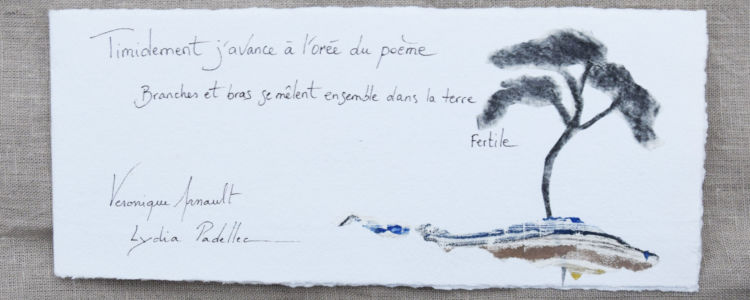 Timidement j'avance à l'orée du poème
Branches et bras se mêlent ensemble dans la terre
Fertile
Véronique Arnault
Lydia Padellec